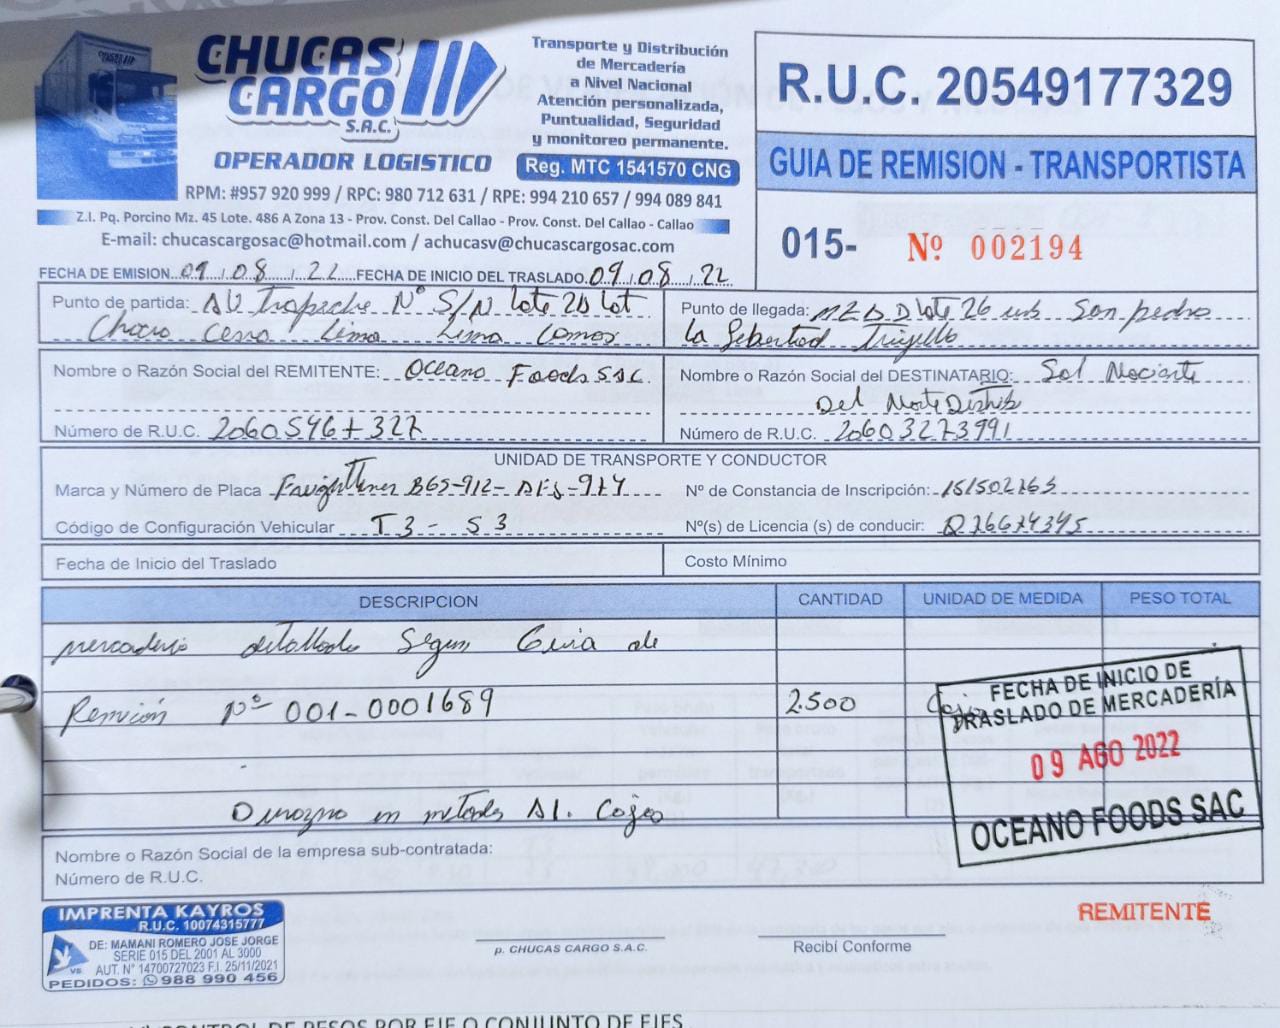 CHUCAS CARGO S.A.C.
OPERADOR LOGISTICO
Transporte y Distribución
de Mercadería
a Nivel Nacional
Atención personalizada,
Puntualidad, Seguridad
y monitoreo permanente.
Reg. MTC 1541570 CNG
RPM: #957 920 999 / RPC: 980 712 631 / RPE: 994 210 657 / 994 089 841
Z.I. Pq. Porcino Mz. 45 Lote. 486 A Zona 13 - Prov. Const. Del Callao - Prov. Const. Del Callao - Callao
E-mail: chucascargosac@hotmail.com / achucasv@chucascargosac.com
R.U.C. 20549177329
GUIA DE REMISION - TRANSPORTISTA
015- Nº 002194
FECHA DE EMISION 09/08/22 FECHA DE INICIO DEL TRASLADO 09/08/22
Punto de partida: AV Trapiche Nº S/N lote 2B lot
Chacra Cerro Lima Lima Comas
Punto de llegada: D lote 26 urb San pedro
la Libertad Trujillo
Nombre o Razón Social del REMITENTE: Oceano Foods SAC
Número de R.U.C. 20605467327
Nombre o Razón Social del DESTINATARIO: Sol Naciente
Del Norte Distrib
Número de R.U.C. 20603273991
UNIDAD DE TRANSPORTE Y CONDUCTOR
Marca y Número de Placa Freightliner B6S-912-
Nº de Constancia de Inscripción: 151502163
Código de Configuración Vehicular T3 - S3
Nº(s) de Licencia (s) de conducir: Q76674345
Fecha de Inicio del Traslado
Costo Mínimo
DESCRIPCION CANTIDAD UNIDAD DE MEDIDA PESO TOTAL
mercaderia detallada Segun Guia de
Remision Nº 001-0001689 2500 Cajas
Durazno en mitades Al. Cojeo
FECHA DE INICIO DE
TRASLADO DE MERCADERÍA
09 AGO 2022
OCEANO FOODS SAC
Nombre o Razón Social de la empresa sub-contratada:
Número de R.U.C.
IMPRENTA KAYROS
R.U.C. 10074315777
DE: MAMANI ROMERO JOSE JORGE
SERIE 015 DEL 2001 AL 3000
AUT. Nº 14700727023 F.I. 25/11/2021
PEDIDOS: 988 990 456
p. CHUCAS CARGO S.A.C.
Recibí Conforme
REMITENTE
CONTROL DE PESOS POR EJE O CONJUNTO DE EJES